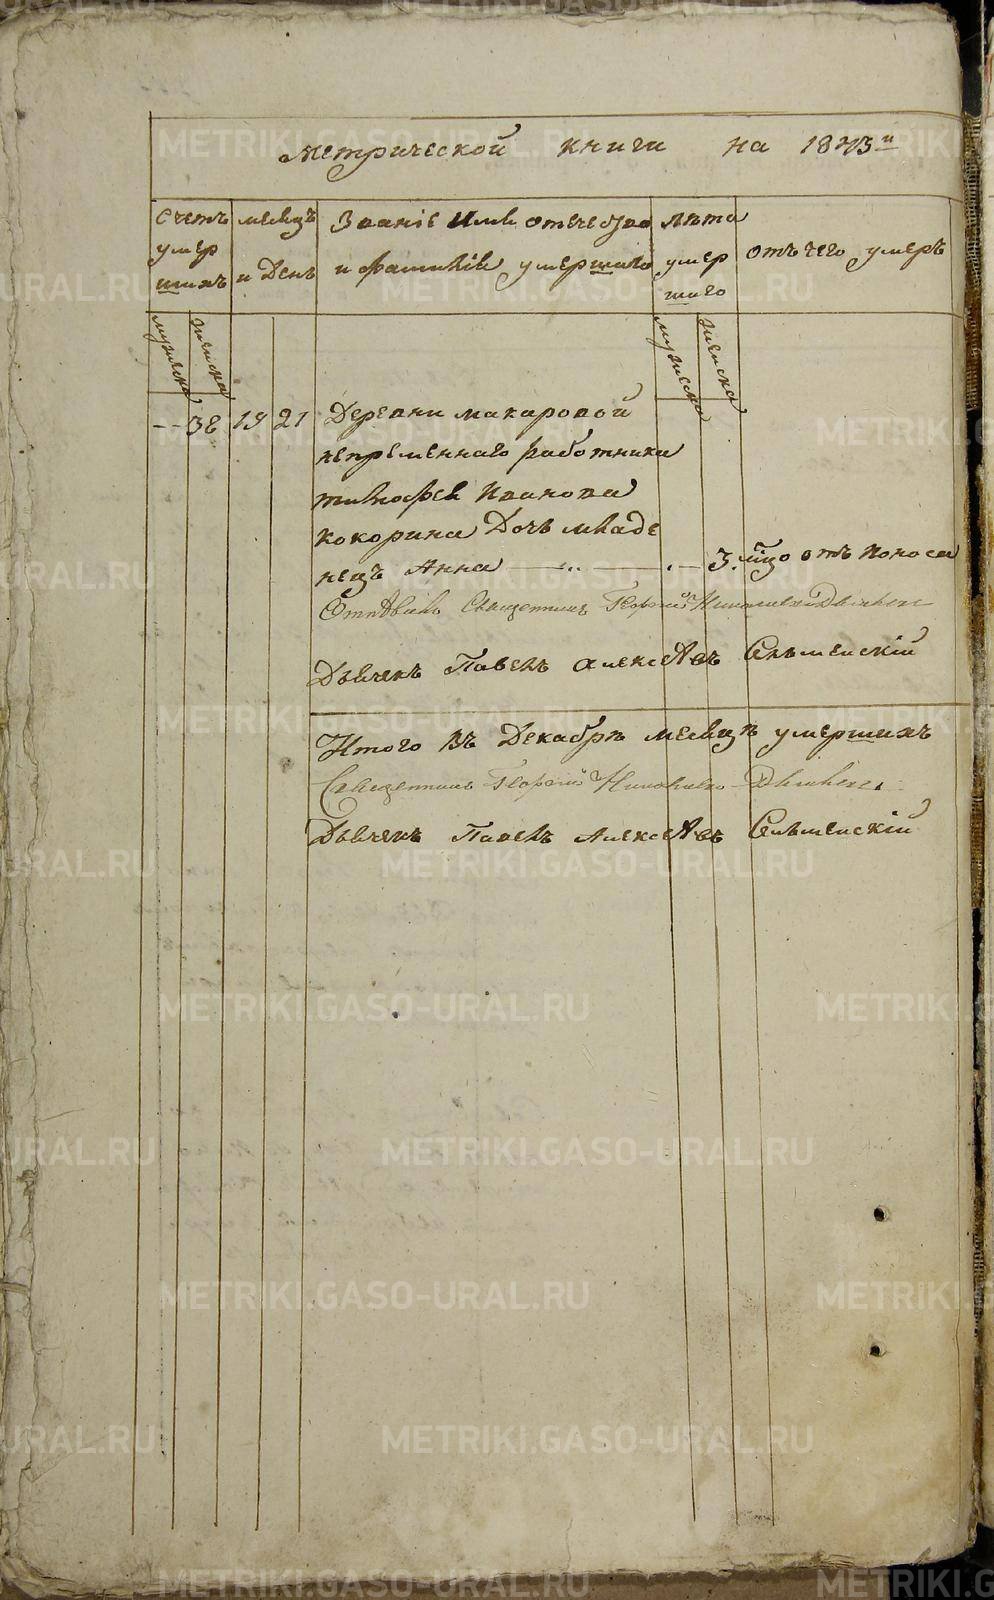 Метрической книги на 1843й
Счетъ умер шихъ
месяцъ и День
Званіе Имя отечество и фамилія умершаго
лѣта умер шаго
отъ чего умеръ
мужеска
женска
мужеска
женска
— 38 19 21 Деревни макаровой
непременнаго работника
тимофея Иванова
кокорина Дочь младе
нецъ Анна — 3. мцо отъ поноса
Отпѣвалъ Священникъ Георгій Николаевъ
Дьячекъ Павелъ алексѣевъ
Итого въ Декабрѣ месяцѣ умершихъ
Священникъ Георгій
Дьячекъ Павелъ Алексѣевъ
METRIKI.GASO-URAL.RU